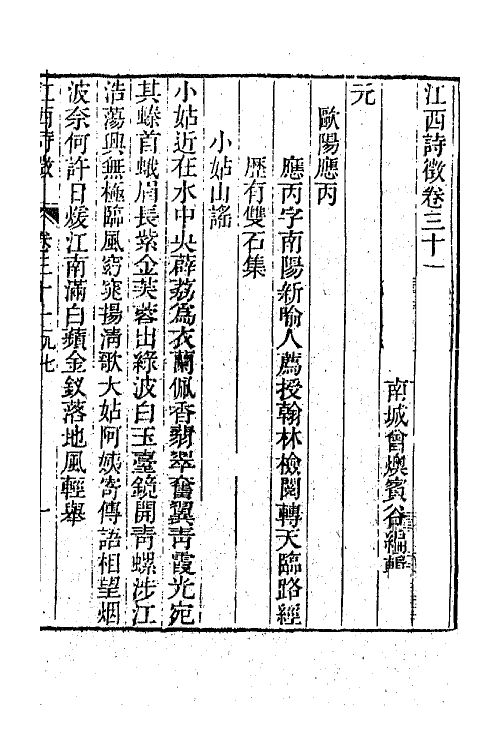 江西詩徵卷三十一
南城曾燠賓谷編輯
元
歐陽應丙
應丙字南陽新喻人薦授翰林檢閱轉天臨路經
歷有雙石集
小姑山謠
小姑近在水中央薜荔為衣蘭佩香翡翠奮翼靑霞光宛
其螓首蛾眉長紫金芙蓉出綠波白玉臺鏡開靑螺涉江
浩蕩興無極臨風窈窕揚淸歌大姑阿姨寄傳語相望烟
波奈何許日煖江南滿白蘋金釵落地風輕舉
江西詩徵 卷三十一 元七 一